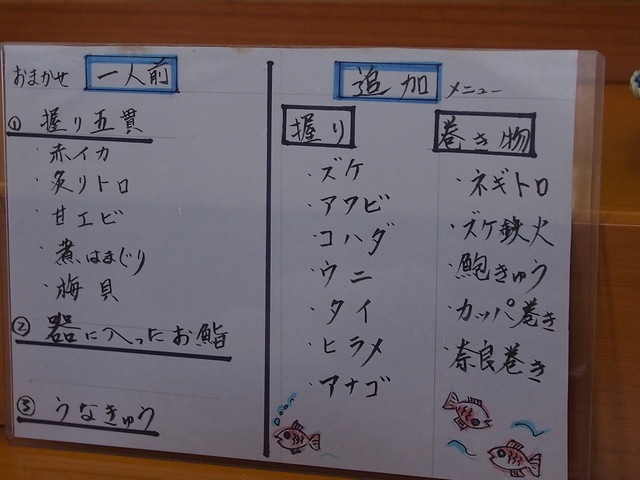 おまかせ 一人前
① 握り五貫
・赤イカ
・炙りトロ
・甘エビ
・煮はまぐり
・梅貝
② 器に入ったお鮨
③ うなきゅう
追加 メニュー
握り
・ズケ
・アワビ
・コハダ
・ウニ
・タイ
・ヒラメ
・アナゴ
巻き物
・ネギトロ
・ズケ鉄火
・鮑きゅう
・カッパ巻き
・奈良巻き